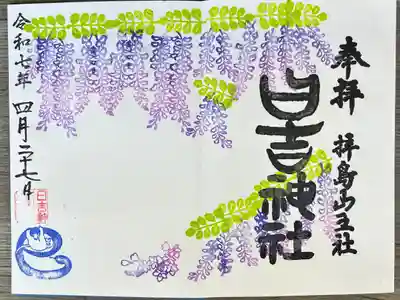 奉拝 拝島山王社
日吉神社
令和七年 四月二十七日